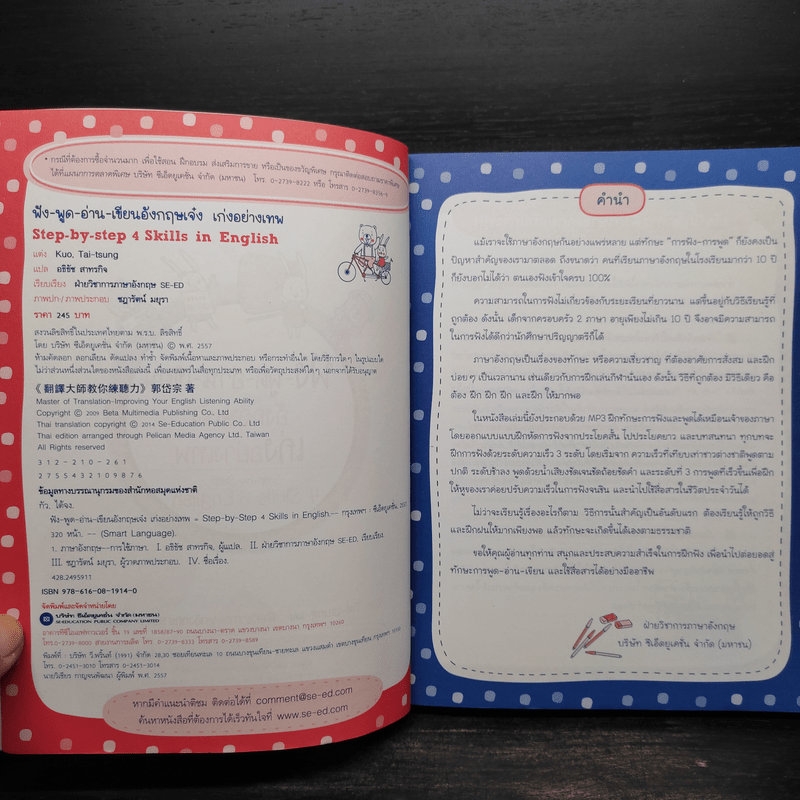 • กรณีที่ต้องการซื้อจำนวนมาก เพื่อใช้สอน ฝึกอบรม ส่งเสริมการขาย หรือเป็นของขวัญพิเศษ กรุณาติดต่อสอบถามราคาพิเศษ
ได้ที่แผนกการตลาดพิเศษ บริษัท ซีเอ็ดยูเคชั่น จำกัด (มหาชน) โทร. 0-2739-8222 หรือ โทรสาร 0-2739-8356-9
ฟัง-พูด-อ่าน-เขียนอังกฤษเจ๋ง เก่งอย่างเทพ
Step-by-step 4 Skills in English
แต่ง Kuo, Tai-tsung
แปล อธิธัช สาทรกิจ
เรียบเรียง ฝ่ายวิชาการภาษาอังกฤษ SE-ED
ภาพปก / ภาพประกอบ ชฎารัตน์ มยุรา
ราคา 245 บาท
สงวนลิขสิทธิ์ในประเทศไทยตาม พ.ร.บ. ลิขสิทธิ์
โดย บริษัท ซีเอ็ดยูเคชั่น จำกัด (มหาชน) © พ.ศ. 2557
ห้ามคัดลอก ลอกเลียน ดัดแปลง ทำซ้ำ จัดพิมพ์เนื้อหาและภาพประกอบ หรือกระทำอื่นใด โดยวิธีการใดๆ ในรูปแบบใด
ไม่ว่าส่วนหนึ่งส่วนใดของหนังสือเล่มนี้ เพื่อเผยแพร่ในสื่อทุกประเภท หรือเพื่อวัตถุประสงค์ใดๆ นอกจากได้รับอนุญาต
《翻譯大師教你練聽力》郭岱宗 著
Master of Translation-Improving Your English Listening Ability
Copyright © 2009 Beta Multimedia Publishing Co., Ltd
Thai translation copyright © 2014 Se-Education Public Co., Ltd
Thai edition arranged through Pelican Media Agency Ltd. Taiwan
All Rights reserved
312-210-261
2755432109876
ข้อมูลทางบรรณานุกรมของสำนักหอสมุดแห่งชาติ
กัว, ไต้จง.
ฟัง-พูด-อ่าน-เขียนอังกฤษเจ๋ง เก่งอย่างเทพ = Step-by-Step 4 Skills in English.-- กรุงเทพฯ : ซีเอ็ดยูเคชั่น, 2557.
320 หน้า. -- (Smart Language).
1. ภาษาอังกฤษ--การใช้ภาษา. I. อธิธัช สาทรกิจ, ผู้แปล. II. ฝ่ายวิชาการภาษาอังกฤษ SE-ED, เรียบเรียง.
III. ชฎารัตน์ มยุรา, ผู้วาดภาพประกอบ. IV. ชื่อเรื่อง.
428.2495911
ISBN 978-616-08-1914-0
จัดพิมพ์และจัดจำหน่ายโดย
บริษัท ซีเอ็ดยูเคชั่น จำกัด (มหาชน)
SE-EDUCATION PUBLIC COMPANY LIMITED
อาคารทีซีไอเอฟทาวเวอร์ ชั้น 19 เลขที่ 1858/87-90 ถนนบางนา-ตราด แขวงบางนา เขตบางนา กรุงเทพฯ 10260
โทร. 0-2739-8000 สายงานการผลิต โทร. 0-2739-8333 โทรสาร 0-2739-8589
พิมพ์ที่ : บริษัท วี.พริ้นท์ (1991) จำกัด 28,30 ซอยเทียนทะเล 10 ถนนบางขุนเทียน-ชายทะเล แขวงแสมดำ เขตบางขุนเทียน กรุงเทพฯ
โทร. 0-2451-3010 โทรสาร 0-2451-3014
นายวิเชียร กาญจนพัฒนา ผู้พิมพ์ พ.ศ. 2557
หากมีคำแนะนำติชม ติดต่อได้ที่ comment@se-ed.com
ค้นหาหนังสือที่ต้องการได้เร็วทันใจที่ www.se-ed.com
คำนำ
แม้เราจะใช้ภาษาอังกฤษกันอย่างแพร่หลาย แต่ทักษะ "การฟัง-การพูด" ก็ยังคงเป็น
ปัญหาสำคัญของเรามาตลอด ถึงขนาดว่า คนที่เรียนภาษาอังกฤษในโรงเรียนมากว่า 10 ปี
ก็ยังบอกไม่ได้ว่า ตนเองฟังเข้าใจครบ 100%
ความสามารถในการฟังไม่เกี่ยวข้องกับระยะเรียนที่ยาวนาน แต่ขึ้นอยู่กับวิธีเรียนรู้ที่
ถูกต้อง ดังนั้น เด็กจากครอบครัว 2 ภาษา อายุเพียงไม่เกิน 10 ปี จึงอาจมีความสามารถ
ในการฟังได้ดีกว่านักศึกษาปริญญาตรีก็ได้
ภาษาอังกฤษเป็นเรื่องของทักษะ หรือความเชี่ยวชาญ ที่ต้องอาศัยการสั่งสม และฝึก
บ่อยๆ เป็นเวลานาน เช่นเดียวกับการฝึกเล่นกีฬานั่นเอง ดังนั้น วิธีที่ถูกต้อง มีวิธีเดียว คือ
ต้อง ฝึก ฝึก ฝึก และ ฝึก ให้มากพอ
ในหนังสือเล่มนี้ยังประกอบด้วย MP3 ฝึกทักษะการฟังและพูดได้เหมือนเจ้าของภาษา
โดยออกแบบแบบฝึกหัดการฟังจากประโยคสั้น ไปประโยคยาว และบทสนทนา ทุกบทจะ
ฝึกการฟังด้วยระดับความเร็ว 3 ระดับ โดยเริ่มจาก ความเร็วที่เทียบเท่าชาวต่างชาติพูดตาม
ปกติ ระดับช้าลง พูดด้วยน้ำเสียงชัดเจนชัดถ้อยชัดคำ และระดับที่ 3 การพูดที่เร็วขึ้นเพื่อฝึก
ให้หูของเราค่อยปรับความเร็วในการฟังจนชิน และนำไปใช้สื่อสารในชีวิตประจำวันได้
ไม่ว่าจะเรียนรู้เรื่องอะไรก็ตาม วิธีการนั้นสำคัญเป็นอันดับแรก ต้องเรียนรู้ให้ถูกวิธี
และฝึกฝนให้มากเพียงพอ แล้วทักษะจะเกิดขึ้นได้เองตามธรรมชาติ
ขอให้คุณผู้อ่านทุกท่าน สนุกและประสบความสำเร็จในการฝึกฟัง เพื่อนำไปต่อยอดสู่
ทักษะการพูด-อ่าน-เขียน และใช้สื่อสารได้อย่างมืออาชีพ
ฝ่ายวิชาการภาษาอังกฤษ
บริษัท ซีเอ็ดยูเคชั่น จำกัด (มหาชน)